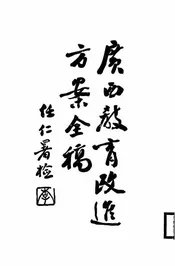 廣西教育改進
方案全稿
任仁署檢